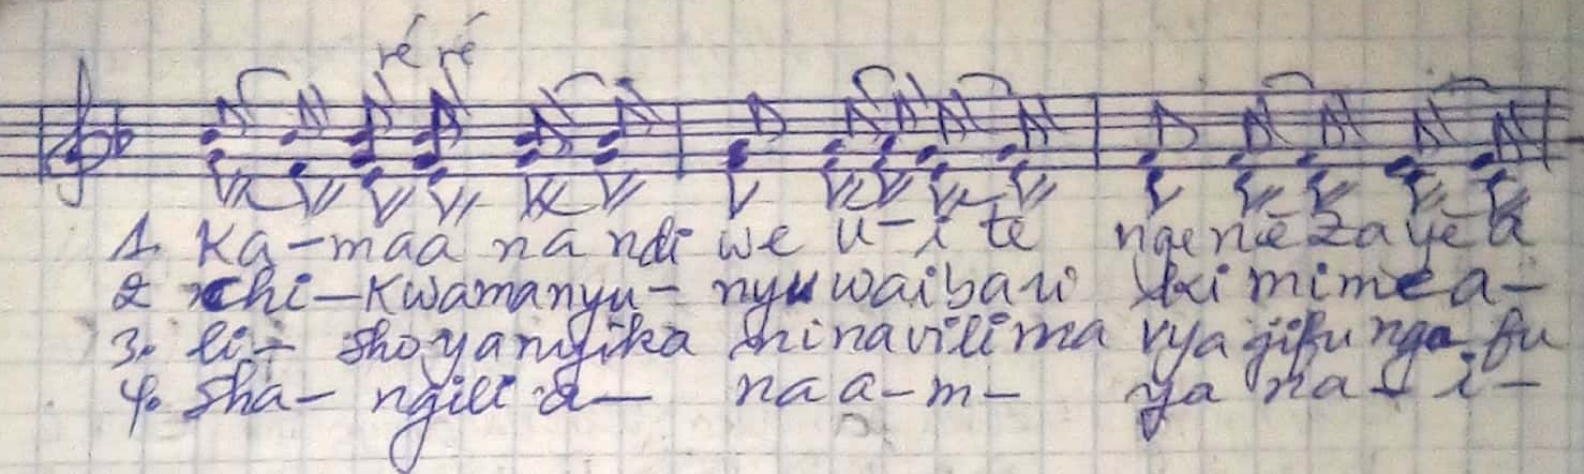 ré ré
1. Ka-maa na ndi we u-i te ngeneza yea
2 chi-Kwamanyu- nyu waibari ki mimea-
3. li- shoyanyika ni na vilima vya jifunga fu
4. Sha- ngili a- na a-m- ya na- i-